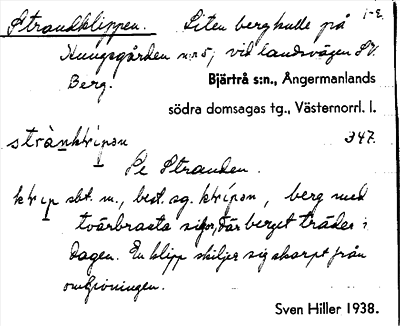 Strandklippen. Liten bergkulle på 1-2.
Kungsgården nr 5, vid landsvägen SV.
Berg. Bjärtrå s:n., Ångermanlands
södra domsagas tg., Västernorrl. l.
347.
Se Stranden.
sbt. m., best. sg. , berg med
tvärbranta sidor, där berget träder i
dagen. En klipp skiljer sig skarpt från
omgivningen.
Sven Hiller 1938.